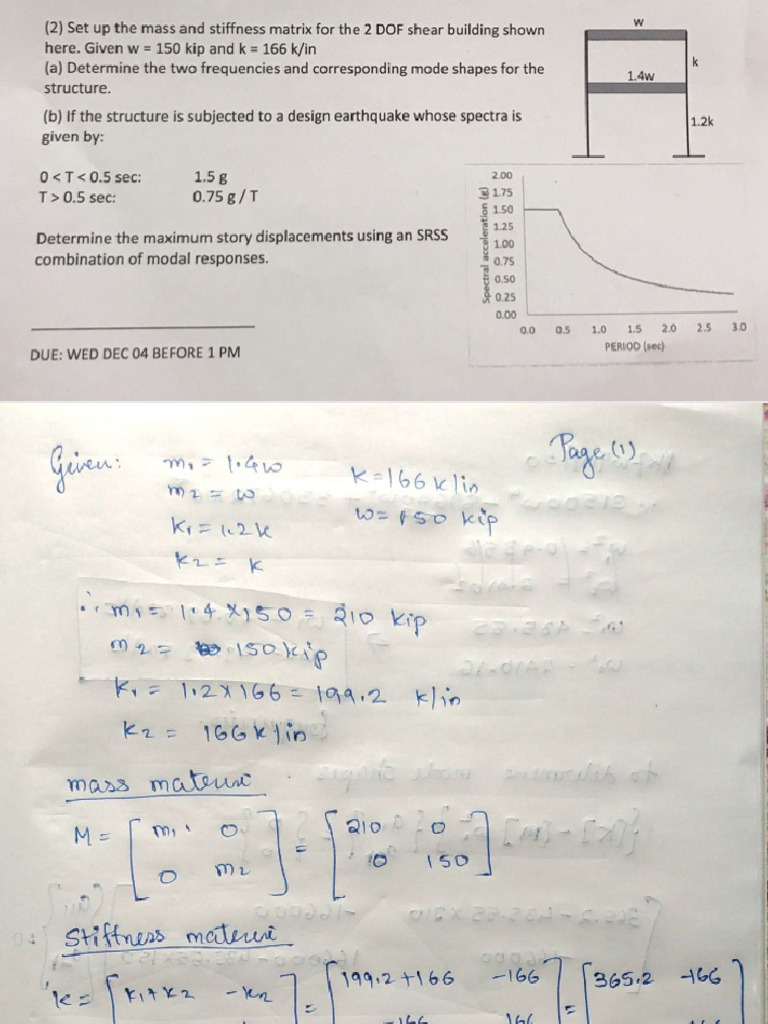 (2) Set up the mass and stiffness matrix for the 2 DOF shear building shown
here. Given w = 150 kip and k = 166 k/in
(a) Determine the two frequencies and corresponding mode shapes for the
structure.
(b) If the structure is subjected to a design earthquake whose spectra is
given by:
0 < T < 0.5 sec: 1.5 g
T > 0.5 sec: 0.75 g / T
Determine the maximum story displacements using an SRSS
combination of modal responses.
DUE: WED DEC 04 BEFORE 1 PM
w
k
1.4w
1.2k
Spectral acceleration (g)
2.00
1.75
1.50
1.25
1.00
0.75
0.50
0.25
0.00
0.0 0.5 1.0 1.5 2.0 2.5 3.0
PERIOD (sec)
Page (1)
Given: m1 = 1.4w K=166 k/in
m2 = w w= 150 kip
K1 = 1.2k
K2 = k
∴ m1 = 1.4 x 150 = 210 kip
m2 = 150 kip
K1 = 1.2 x 166 = 199.2 k/in
K2 = 166 k/in
mass
M = [ m1 0 ] = [ 210 0 ]
[ 0 m2 ] [ 0 150 ]
Stiffness
k = [ K1+K2 -K2 ] = [ 199.2+166 -166 ] = [ 365.2 -166 ]
-166 166